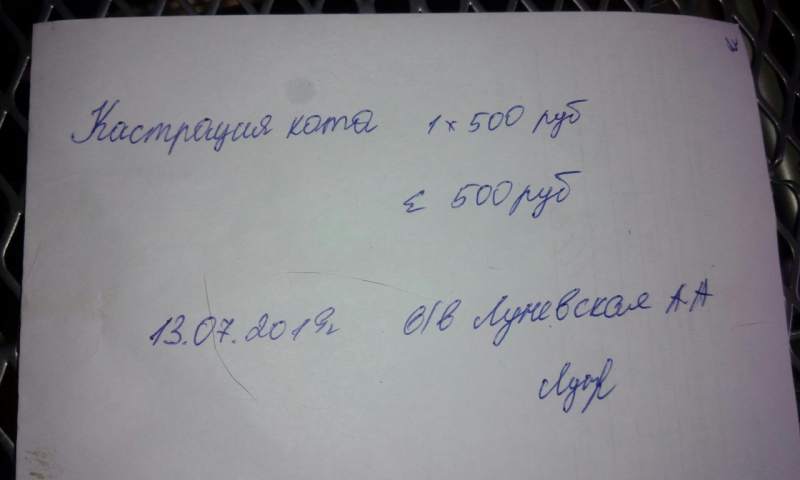 Кастрация кота 1 x 500 руб
Σ 500 руб
13.07.2019г. в/в Луневская А А